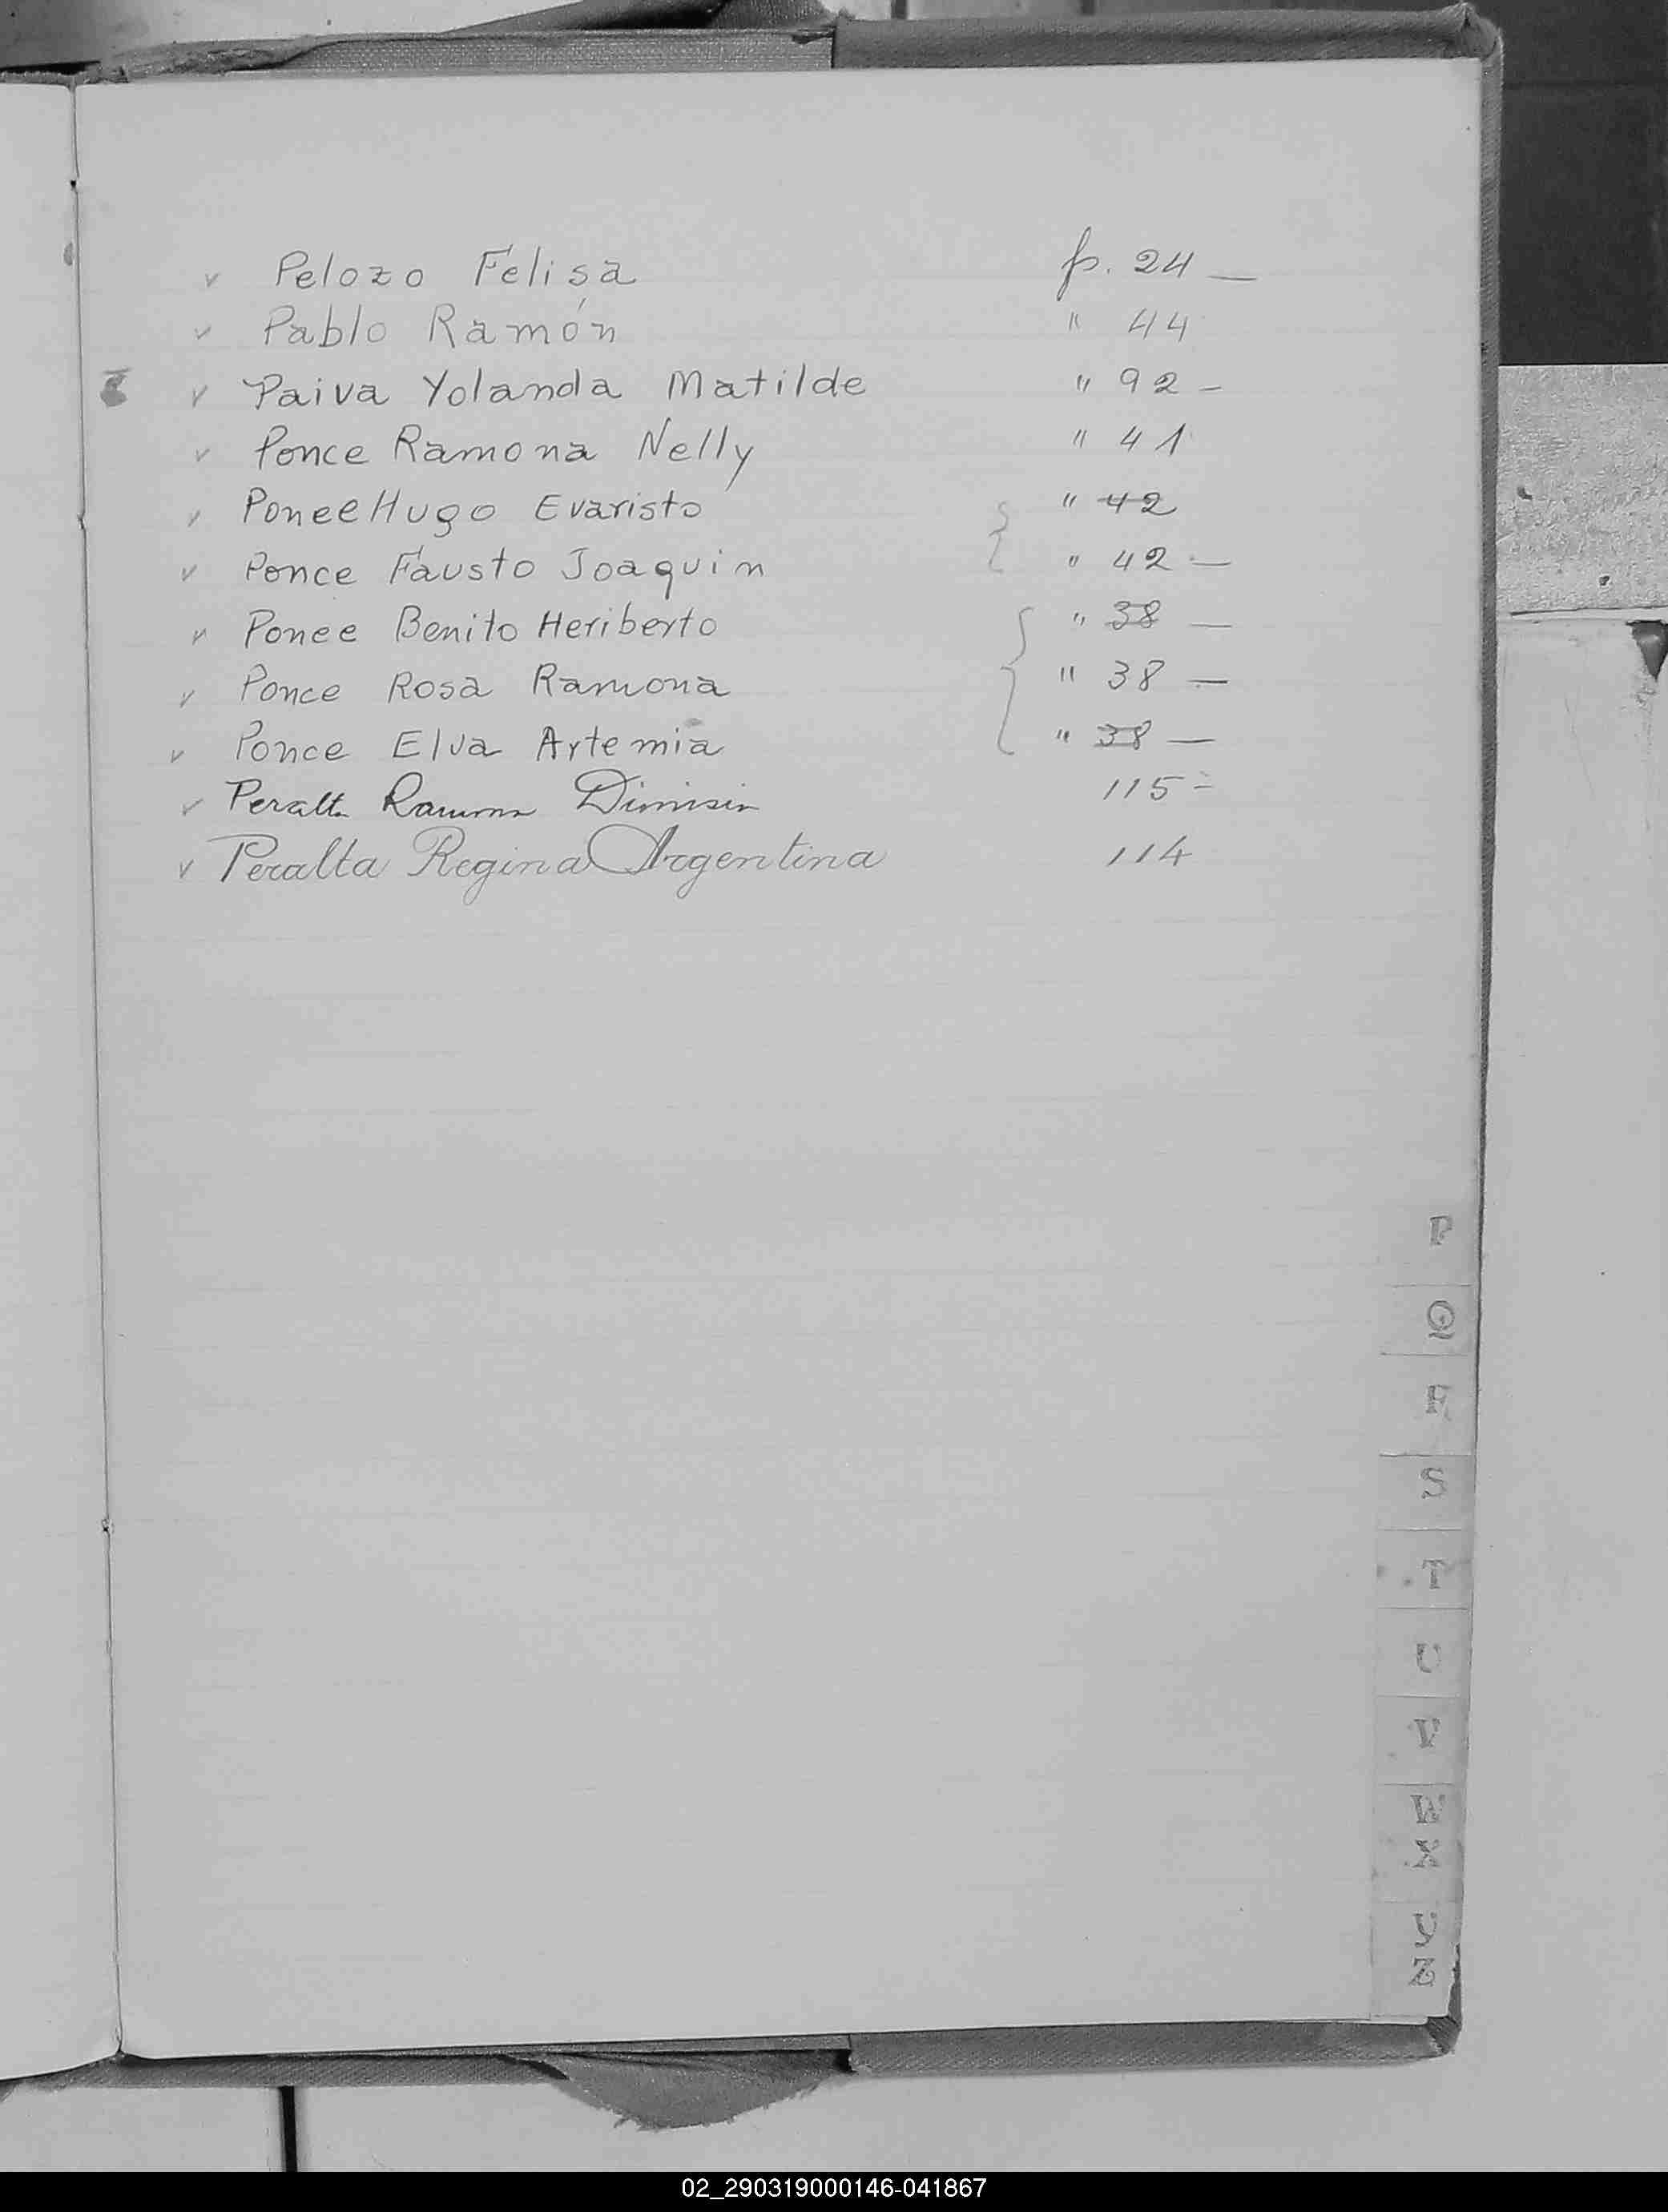 v Pelozo Felisa p. 24 —
v Pablo Ramón " 44
v Paiva Yolanda Matilde " 92 -
v Ponce Ramona Nelly " 41
v Ponce Hugo Evaristo " 42
v Ponce Fausto Joaquin " 42 —
v Ponce Benito Heriberto " 38 —
v Ponce Rosa Ramona " 38 —
v Ponce Elva Artemia " 38 —
v Peralta Ramon 115 -
v Peralta Regina Argentina 114
P
Q
R
S
T
U
V
W
X
Y
Z
02_290319000146-041867